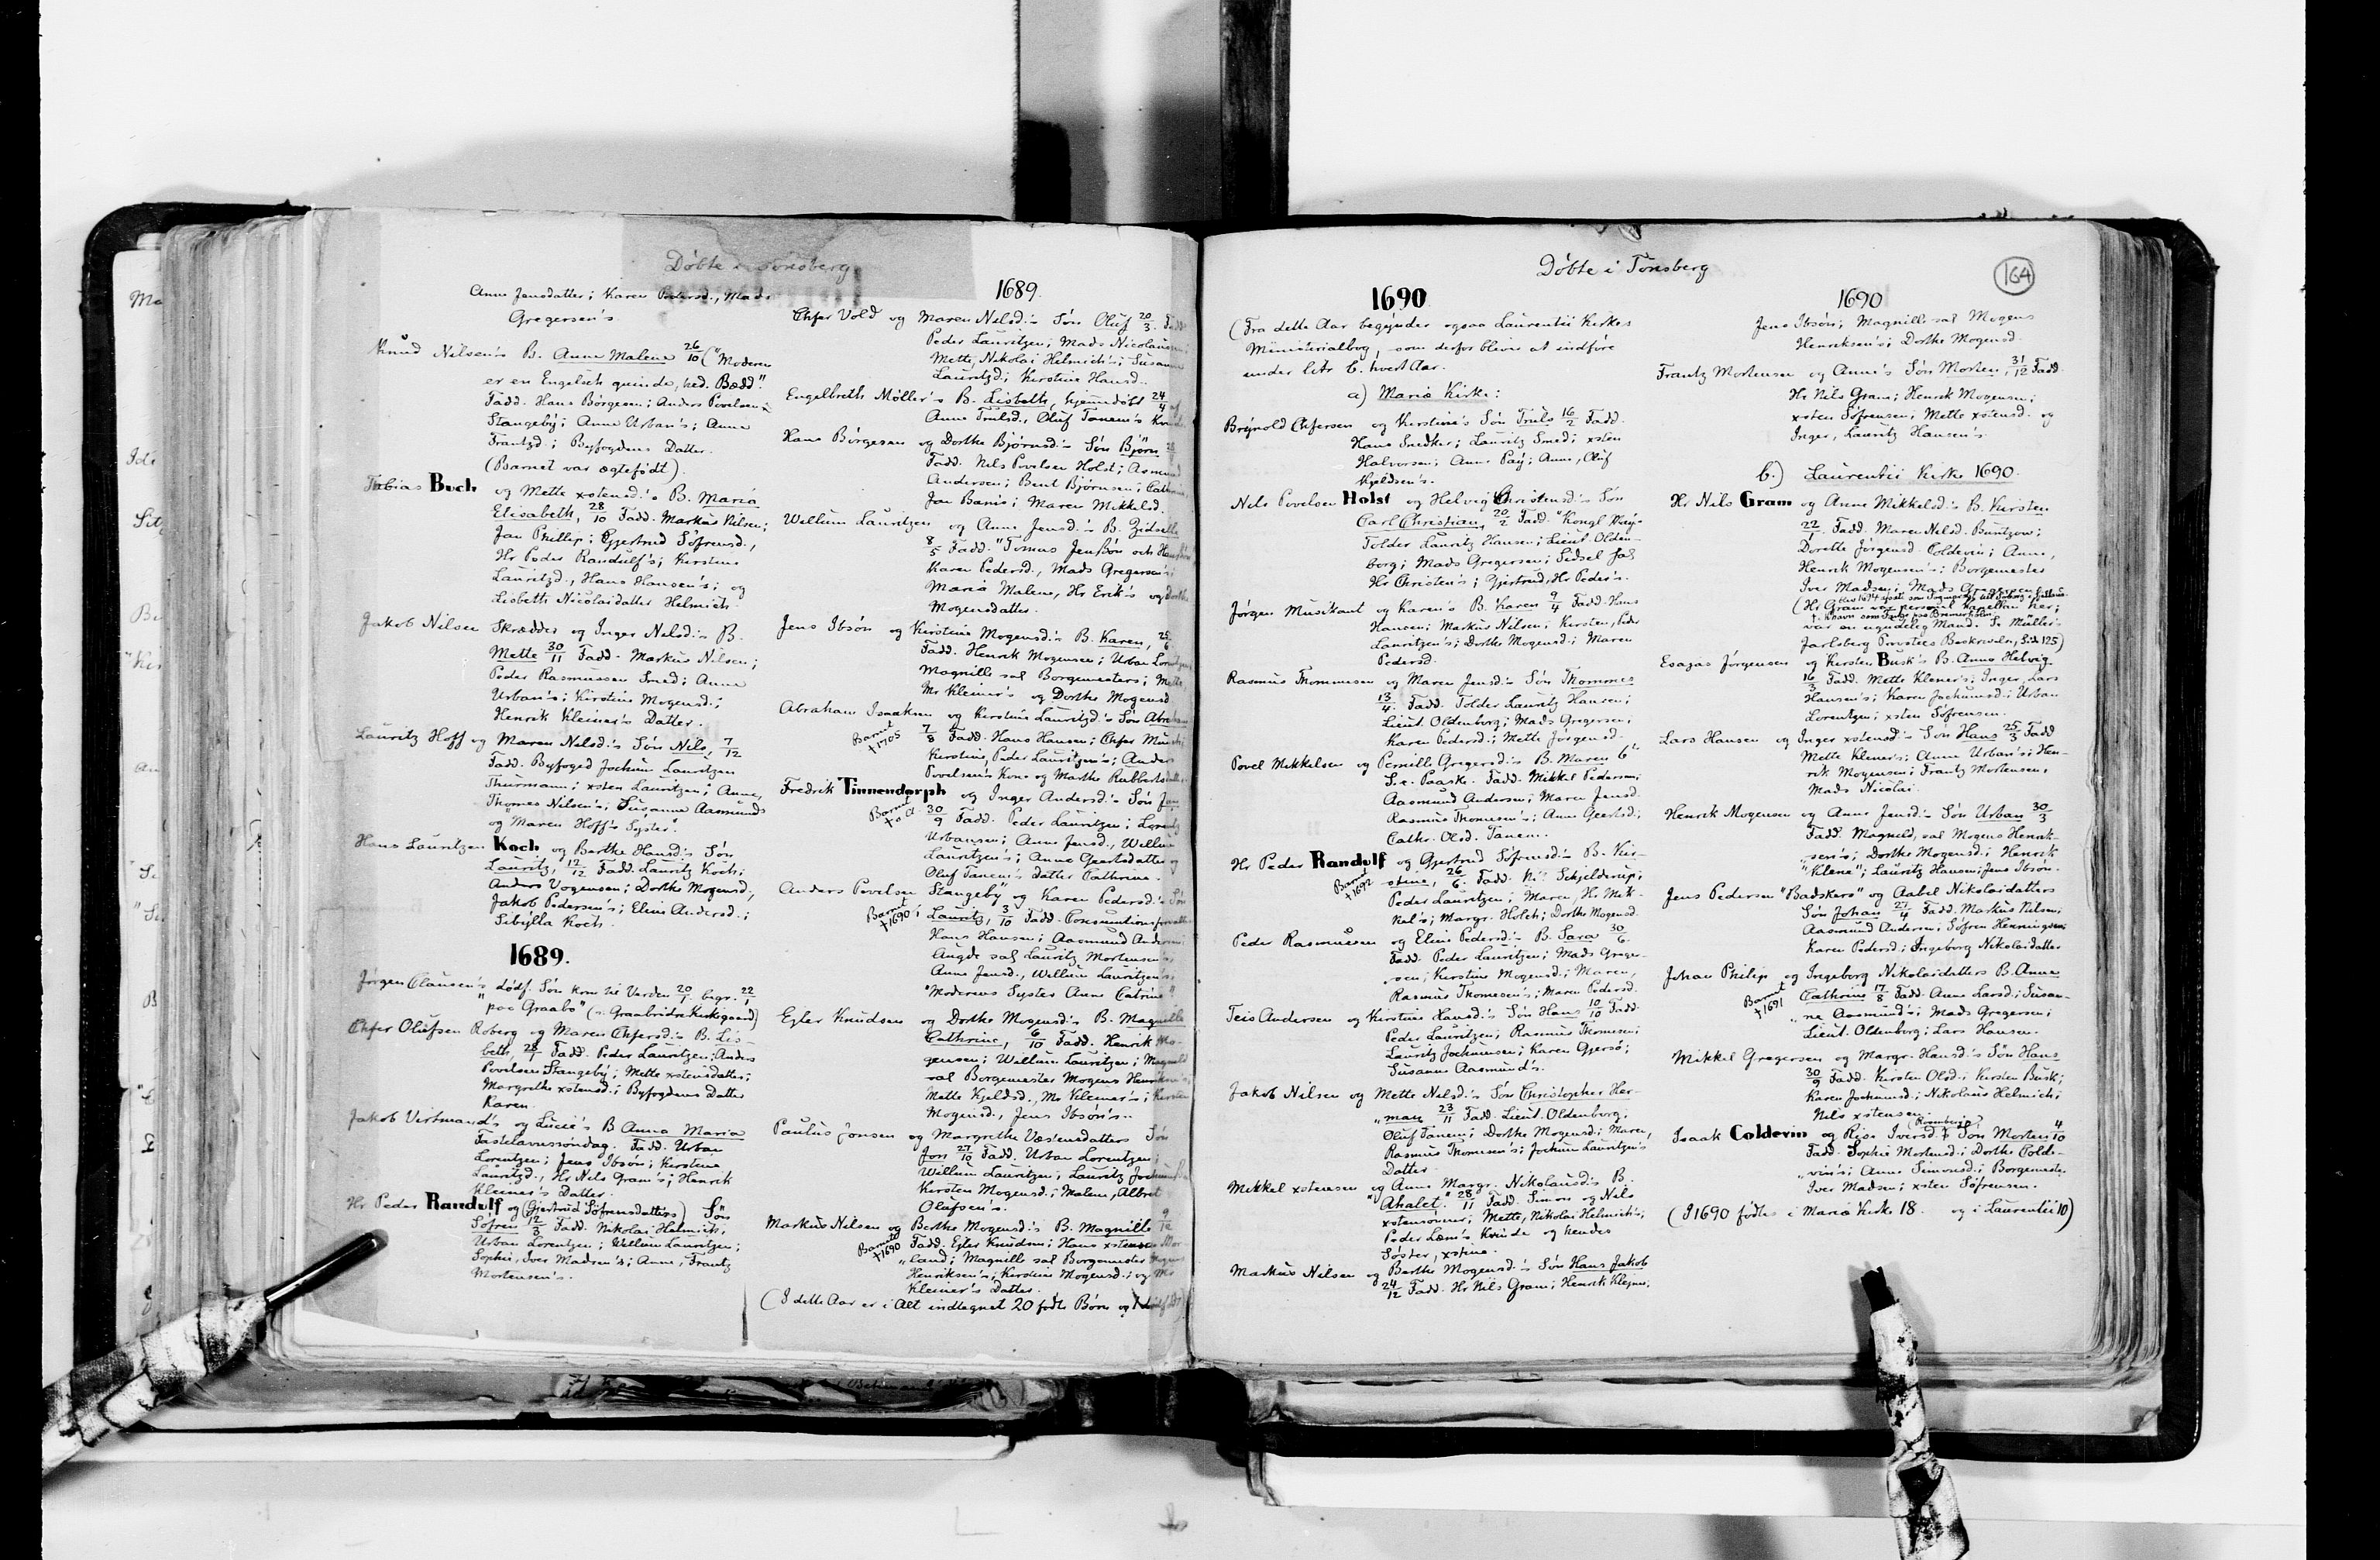 Døbte i Tønsberg
Anne Jensdatter; Karen Pedersd., Mads
Gregersen's
Knud Nilsen's B. Anne Malene 26/10 ("Moderen
er en Engelsch quinde, hed. Bædd".
Fadd. Hans Børgesen; Anders Povelsen
Stangeby; Anne Urban's; Anne
Frantzd; Byfogdens Datter.
(Barnet var ægtefødt).
Tobias Buch og Mette xstensd.'s B. Maria
Elisabeth, 28/10 Fadd. Markus Nilsen;
Jan Phillip; Gjertrud Söfrensd.,
Hr Peder Randulf's; Kirstine
Lauritzd., Hans Hansen's; og
Lisbeth Nicolaidatter Helmich.
Jakob Nilsen Skrædder og Inger Nelsd.'s B.
Mette 30/11 Fadd. Markus Nilsen;
Peder Rasmussen Smed; Anne
Urban's; Kirstine Mogensd.;
Henrik Kleiner's Datter.
Lauritz Hoff og Maren Nelsd.'s Søn Nils, 7/12
Fadd. Byfoged Jochum Lauritzen
Thurmann; xsten Lauritzen; Anne,
Thomes Nilsen's; Susanne Aasmunds
og "Maren Hoff's Syster".
Hans Lauritzen Koch og Berthe Hansd.'s Søn
Lauritz, 12/12 Fadd. Lauritz Koch;
Anders Vogensen; Dorthe Mogensd.,
Jakob Pedersen's; Eline Andersd.;
Sibylla Koch.
1689.
Jörgen Clausen's dødf. Søn kom til Verden 20/1 begr. 22/1
"paa Graabø" (: Graabrødre Kirkegaard)
Chfer Olufsen Roberg og Maren Chfersd.'s B. Lis-
beth, 28/1 Fadd. Peder Lauritzen; Anders
Povelsen Stangeby; Mette xstensdatter;
Margrethe xstensd.; Byfogdens Datter
Karen.
Jakob Virtmand's og Lucie's B Anna Maria
Fastelavnssöndag. Fadd. Urban
Lorentzen; Jens Ibsøn; Kirstine
Lauritzd., Hr Nils Gram's; Henrik
Kleiner's Datter.
Hr Peder Randulf og (Gjertrud Söfrensdatters) Søn
Söfren 12/3 Fadd. Nikolai Helmich,
Urban Lorentzen; Willum Lauritzen;
Sophie, Iver Madsen's; Anne, Frantz
Mortensen's.
1689.
Chfer Vold og Maren Nelsd.'s Søn Oluf 20/3. Fadd
Peder Lauritzen; Mads Nicolausen;
Mette, Nikolai Helmich's; Susanne
Lauritzd; Kirstine Hansd.
Engelbreth Møller's B. Lisbeth, hjemdøbt 24/4 af
Anne Trulsd., Oluf Tanem's
Hans Börgesen og Dorthe Bjørnsd.'s Søn Björn
Fadd. Nils Povelsen Holst; Asmund
Andersen; Bent Bjørnsen;
Jan Baris; Maren Mikkelsd.
Willum Lauritzen og Anne Jensd.'s B. Zidselle
8/5 Fadd. "Tomas Jenßøn och
Karen Pedersd., Mads Gregersen's;
Maria Malene, Hr Erik's og Dorthe
Mogensdatter.
Jens Ibsøn og Kirstine Mogensd.'s B. Karen,
Fadd. Henrik Mogensen; Urban
Magnille sal Borgemesters;
Mr Kleiner's og Dorthe Mogensd
Abraham Isaaksen og Kirstine Lauritzd.'s Søn
Barnet
† 1705
7/8 Fadd. Hans Hansen; Chfer
Kirstine, Peder Lauritzen's; Anders
Povelsen's Kone og Marthe
Fredrik Tinnendorph og Inger Andersd.'s Søn
Barnet
30/9 Fadd. Peder Lauritzen;
Urbansen; Anne Jensd., Willum
Lauritzen's; Anne Geertsdatter og
Oluf Tanem's datter Cathrine.
Anders Povelsen "Stangeby" og Karen Pedersd.'s Søn
Barnet
† 1690
Lauritz, 3/10 Fadd. Consumtionsforvalter
Hans Hansen; Aasmund Andersen;
Augde sal Lauritz Mortensen's,
Anne Jensd., Willum Lauritzen's;
"Moderens Syster Anne Catrine"
Ejler Knudsen og Dorthe Mogensd.'s B. Magnille
Cathrine, 6/10 Fadd. Henrik Mo-
gensen; Willum Lauritzen;
sal Borgemester Mogens
Mette Kjeldsd., Mr Kleiner's;
Mogensd., Jens Ibsøn's.
Paulus Jonsen og Margrethe Væstensdatters Søn
Jon 27/10 Fadd. Urban Lorentzen;
Willum Lauritzen; Lauritz
Kirsten Mogensd.; Malene, Albret
Olufsen's.
Markus Nilsen og Berthe Mogensd.'s B. Magnille
Barnet
† 1690
Fadd. Ejler Knudsen; Hans
land; Magnille sal Borgemester
Henriksen's; Kirstine Mogensd.; og Mr
Kleiner's Datter.
(I dette Aar er i Alt indtegnet 20 fødte Børn og
Døbte i Tønsberg
164
1690
(Fra dette Aar begynder ogsaa Laurentii Kirkes
Ministerialbog, som derfor bliver at indføre
under litr b. hvert Aar.
a) Maria Kirke:
Brynold Chfersen og Kirstine's Søn Truls 16/2 Fadd.
Hans Snedker; Lauritz Smed; xsten
Halvorsen; Anne Pay; Anne, Oluf
Kjeldsen's.
Nels Povelsen Holst og Helvig Christensd.'s Søn
Carl Christian, 20/2 Fadd. "Kongl May's
Tolder Lauritz Hansen; Lieut. Olden-
borg; Mads Gregersen; Sidsel sal
Hr Christen's; Gjertrud, Hr Peder's.
Jørgen Musikant og Karen's B. Karen 9/4 Fadd. Hans
Hansen; Markus Nilsen; Kirsten, Peder
Lauritzen's; Dorthe Mogensd; Maren
Pedersd.
Rasmus Thommesen og Maren Jensd.'s Søn Thommes
13/4. Fadd. Tolder Lauritz Hansen;
Lieut. Oldenborg; Mads Gregersen;
Karen Pedersd.; Mette Jørgensd.
Povel Mikkelsen og Pernille Gregersd.'s B. Maren 6te
S. e. Paaske. Fadd. Mikkel Pedersen;
Aasmund Andersen; Maren Jensd.
Rasmus Thomesen's; Anne Geertsd;
Cathr. Olsd. Tanem.
Hr Peder Randulf og Gjertrud Söfrensd.'s B. Kir-
Barnet
† 1692
stine, 26/6. Fadd. Ni: Schjelderup;
Peder Lauritzen; Maren, Hr Mik-
kel's; Margr. Holch; Dorthe Mogensd.
Peder Rasmussen og Eline Pedersd.'s B. Sara 30/6.
Fadd. Peder Lauritzen; Mads Greger-
sen; Kirstine Mogensd.; Maren,
Rasmus Thomesen's; Maren Pedersd.
Teis Andersen og Kirstine Hansd.'s Søn Hans 10/10 Fadd.
Peder Lauritzen; Rasmus Thomesen;
Lauritz Jochumsen; Karen Gjersø;
Susanne Aasmund's.
Jakob Nilsen og Mette Nelsd.'s Søn Christopher Her-
man 23/11 Fadd. Lieut. Oldenborg;
Oluf Tanem; Dorthe Mogensd; Maren,
Rasmus Thomesen's; Jochum Lauritzen's
Datter.
Mikkel xstensen og Anne Margr. Nikolausd.'s B.
"Ahalet." 28/11 Fadd. Simon og Nils
xstensønner; Mette, Nikolai Helmich's;
Peder Læm's Kvinde og hendes
Søster, xstine.
Markus Nilsen og Berthe Mogensd.'s Søn Hans Jakob
24/12 Fadd. Hr Nils Gram; Henrik Klejner,
1690
Jens Ibsøn; Magnille sal Mogens
Henriksen's; Dorthe Mogensd.
Frantz Mortensen og Anne's Søn Morten, 31/12 Fadd.
Hr Nils Gram; Henrik Mogensen;
xsten Söfrensen; Mette xstensd. og
Inger, Lauritz Hansen's.
b.) Laurentii Kirke 1690.
Hr Nils Gram og Anne Mikkelsd.'s B. Kirsten
22/1. Fadd. Maren Nelsd. Buntzow;
Dorothe Jörgensd. Coldevin; Anne,
Henrik Mogensen's; Borgemester
Iver Madsen; Mads Gregersen.
(Hr Gram var personel Kapellan her;
var en ugudelig Mand. Se Müller's
Jarlsberg Provsties Beskrivelse, Side 125)
Esajas Jørgensen og Kirsten Busk's B. Anne Helvig
16/3 Fadd. Mette Klener's; Inger, Lars
Hansen's; Karen Jochumsd.; Urban
Lorentzen; xsten Söfrensen.
Lars Hansen og Inger xstensd.'s Søn Hans 25/3 Fadd
Mette Klener's; Anne Urban's; Hen-
rik Mogensen; Frantz Mortensen,
Mads Nicolai.
Henrik Mogensen og Anne Jensd.'s Søn Urban 30/3
Fadd. Magnild, sal Mogens Henrik-
sen's; Dorthe Mogensd.; Henrik
"Klene"; Lauritz Hansen; Jens Ibsøn.
Jens Pedersen "Badskers" og Aabel Nikolaidatters
Søn Johan 27/4 Fadd. Markus Nilsen;
Aasmund Andersen; Söfren Henningsen;
Karen Pedersd.; Ingeborg Nikolaidatter
Johan Philip og Ingeborg Nikolaidatters B. Anne
Barnet
† 1691
Cathrine 17/8 Fadd. Anne Larsd.; Susan-
ne Aasmund's; Mads Gregersen;
Lieut. Oldenborg; Lars Hansen.
Mikkel Gregersen og Margr. Hansd.'s Søn Hans
30/9 Fadd. Kirsten Olsd.; Kirsten Busk;
Karen Jochumsd.; Nikolaus Helmich;
Nils xstensen.
Isaak Coldevin og Rise Iversd.'s Søn Morten 4/10
Fadd. Sophie Mortensd.; Dorthe Colde-
vin's; Anne Simonsd.; Borgemester
Iver Madsen; xsten Söfrensen.
(I 1690 fødte i Maria Kirke 18. og i Laurentii 10)